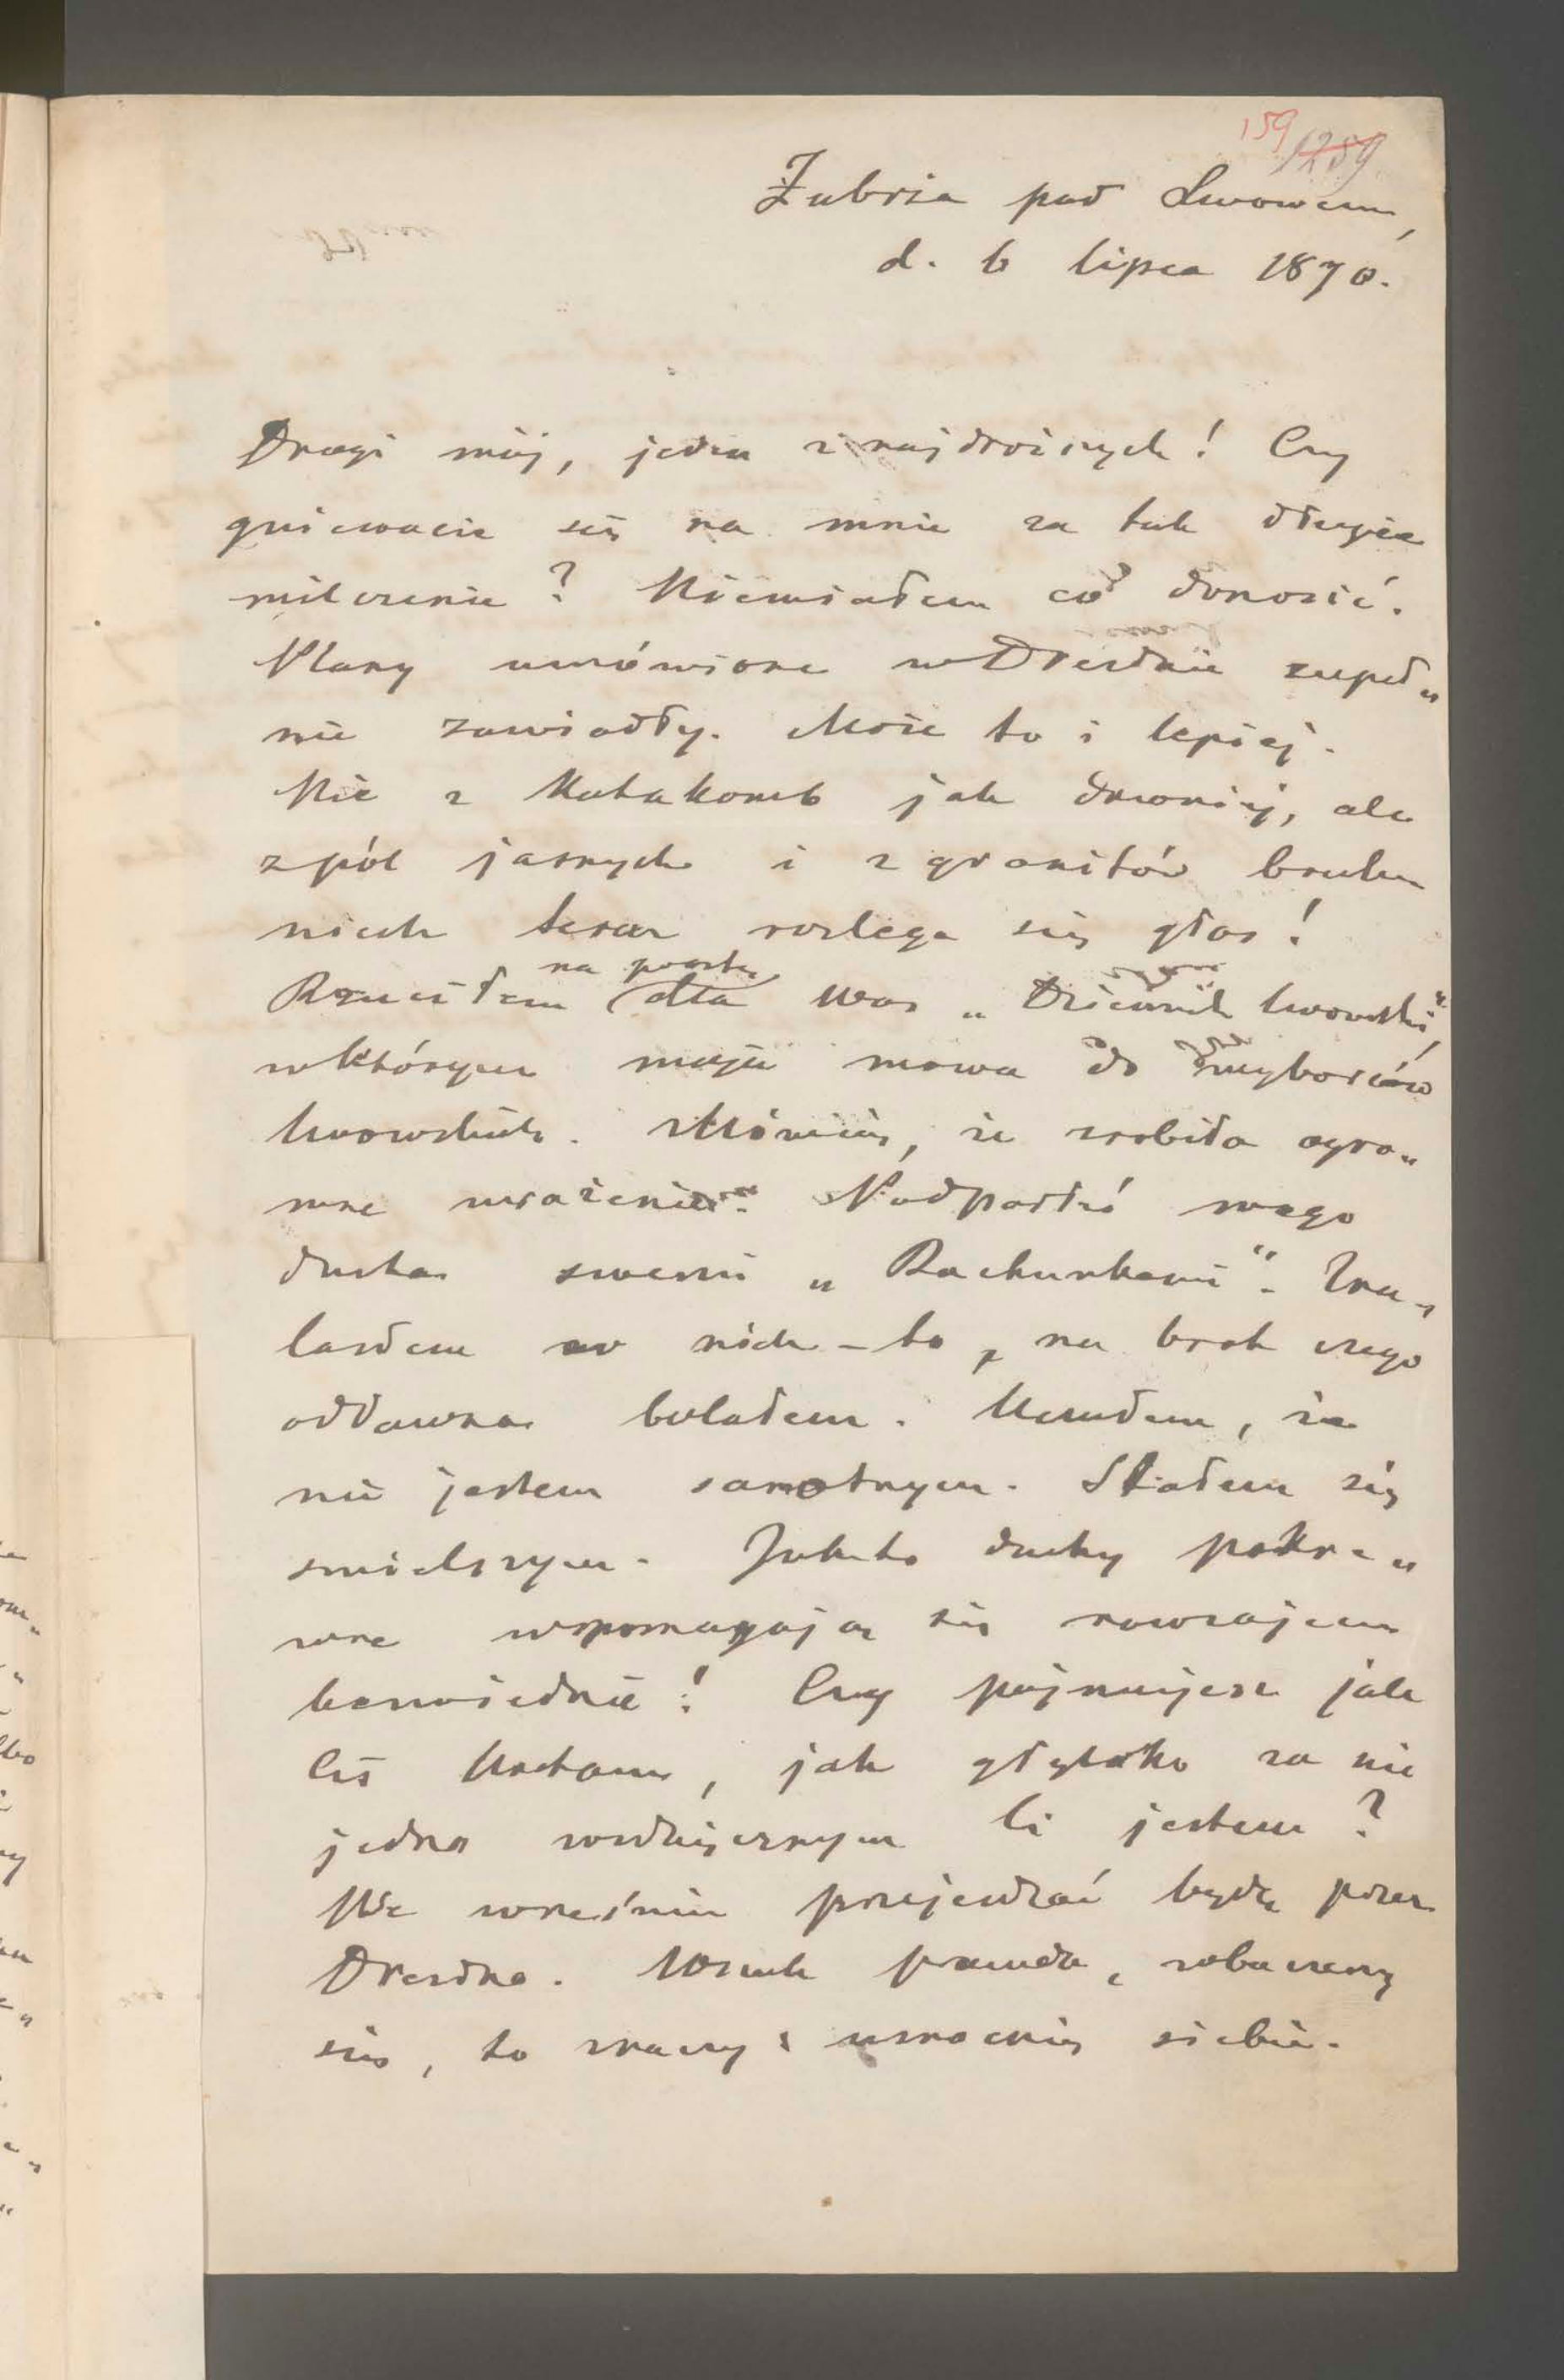 159 1259
Żubrza pod Lwowem,
d. 6 lipca 1870.
Drogi mój, jeden z najdroższych! Czy
gniewacie się na mnie za tak długie
milczenie? Niemiałem co donosić.
Plany umówione w Dreźnie zupeł„
nie zawiodły. Może to i lepiej.
Nie z Katakomb jak dawniej, ale
z pól jasnych i z granitów bruku
niech teraz rozlega się głos!
Rzuciłem na pocztę dla Was „Dziennik lwowski“,
w którym moja mowa do wyborców
lwowskich. Mówią, że zrobiła ogro„
mne wrażenie. Podparłeś mego
ducha swemi „Rachunkami“. Zna„
lazłem w nich to, na brak czego
oddawna bolałem. Uczułem, że
nie jestem samotnym. Stałem się
smielszym. Jak to duchy pokre„
wne wspomagają się nawzajem
bezwiednie! Czy pojmujesz jak
Cię Kocham, jak głęboko za nie
jedno wdzięcznym Ci jestem?
We wrześniu przejeżdżać będę przez
Drezno. Wszak prawda, zobaczemy
się, to znaczy: wzmocnię siebie.